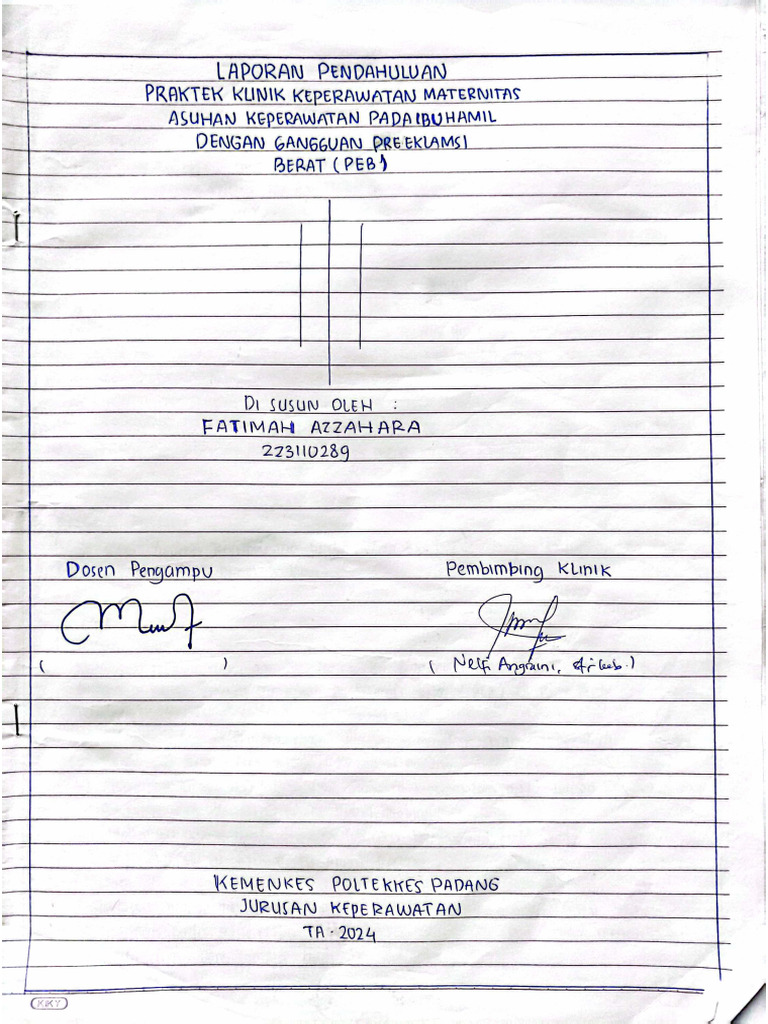 LAPORAN PENDAHULUAN
PRAKTEK KLINIK KEPERAWATAN MATERNITAS
ASUHAN KEPERAWATAN PADA IBU HAMIL
DENGAN GANGGUAN PREEKLAMSI
BERAT (PEB)
DI SUSUN OLEH :
FATIMAH AZZAHARA
223110289
Dosen Pengampu Pembimbing Klinik
( ) ( Nelfi Angraini, )
KEMENKES POLTEKKES PADANG
JURUSAN KEPERAWATAN
TA. 2024
KKY